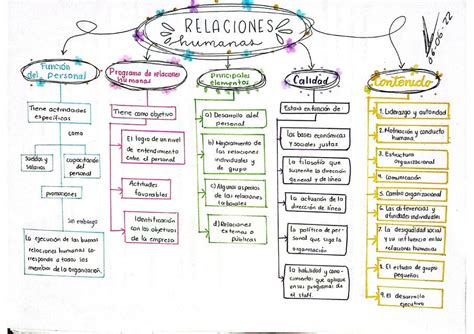 RELACIONES
humanas
06.06.22
Función
del personal
Tiene actividades
específicas
como
sueldos y
salarios
capacitación
del
personal
promociones
Sin embargo
La ejecución de las buenas
relaciones humanas co-
rresponde a todos los
miembros de la organización.
Programa de relaciones
humanas
Tiene como objetivo
El logro de un nivel
de entendimiento
entre el personal
Actitudes
favorables
Identificación
con los objetivos
de la empresa
Principales
elementos
a) Desarrollo del
personal
b) Mejoramiento de
las relaciones
individuales y
de grupo
c) Algunos aspectos
de las relaciones
laborales
d) Relaciones
externas o
públicas
Calidad
Estará en función de:
Las bases económicas
y sociales justas
La filosofía que
sustente la dirección
general y de línea
La actuación de la
dirección de línea
La política de per-
sonal que siga la
organización
La habilidad y cono-
cimientos que aplique
en sus programas de
el staff.
Contenido
1. Liderazgo y autoridad
2. Motivación y conducta
humana
3. Estructura
organizacional
4. Comunicación
5. Cambio organizacional
6. Las diferencias y
afinidades individuales
7. La desigualdad social
y su influencia en las
relaciones humanas
8. El estudio de grupos
pequeños
9. El desarrollo ejecutivo